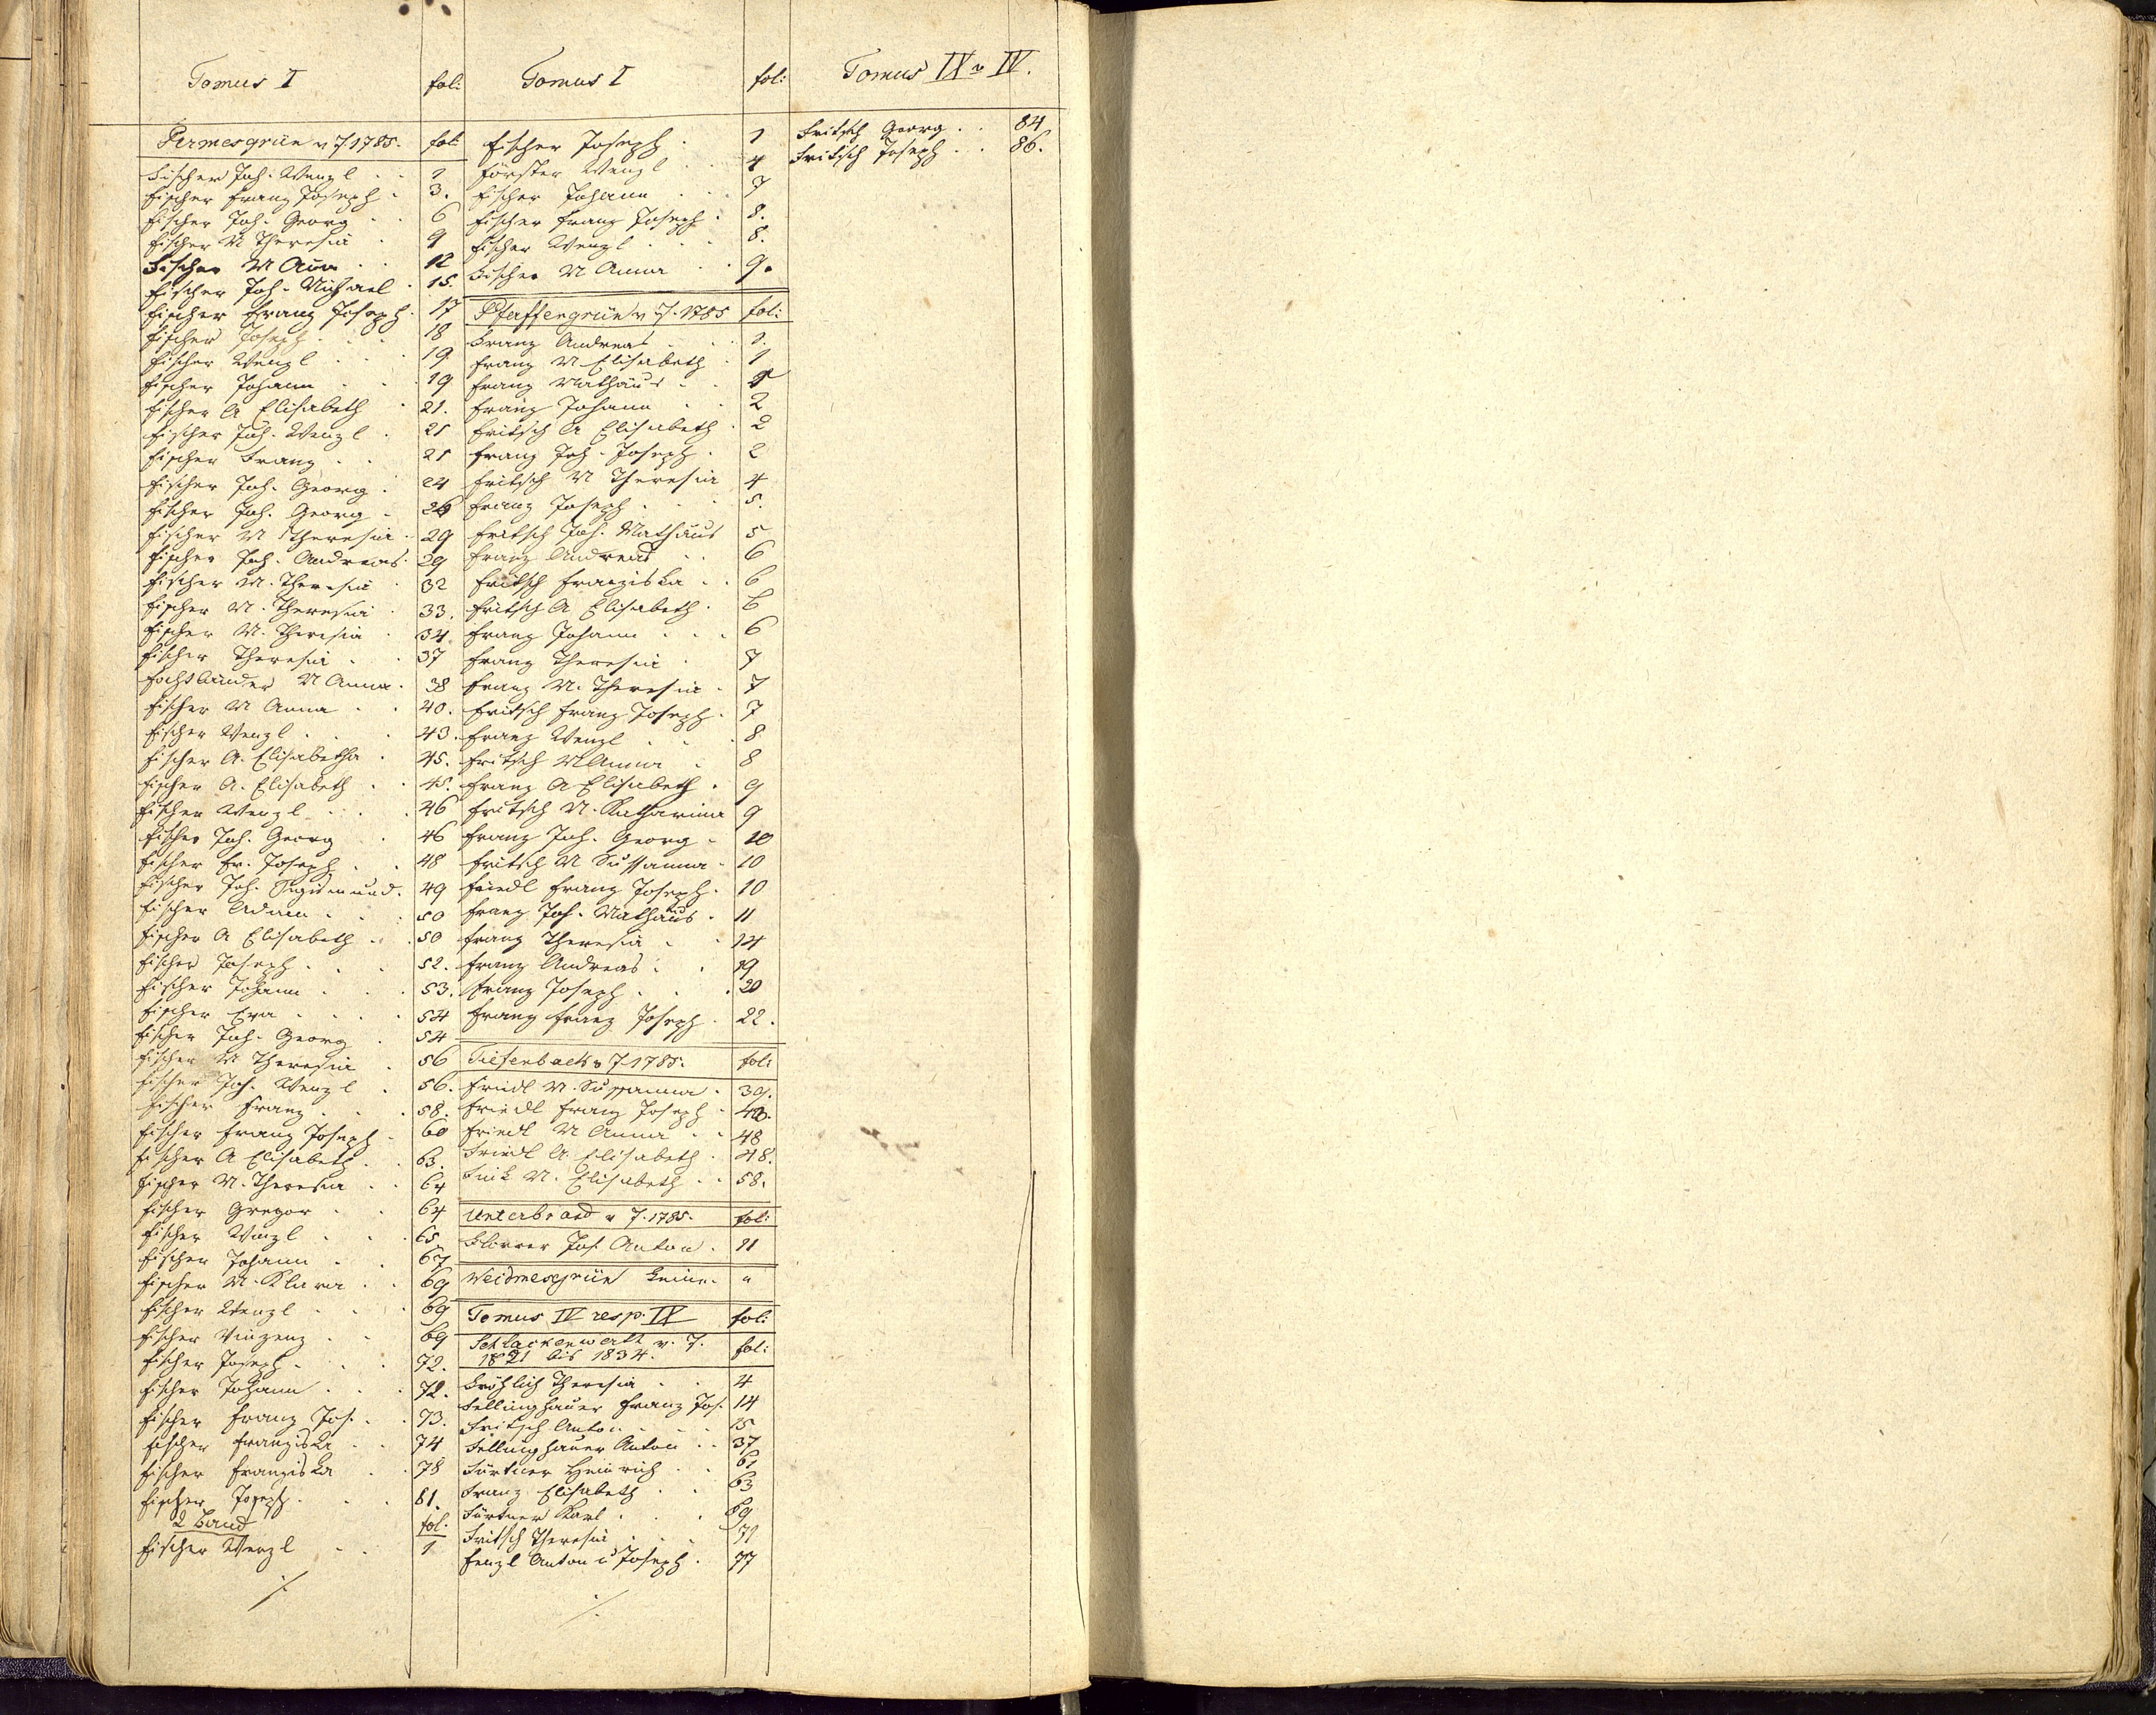 Tomus I fol:
Permesgrün v J. 1785. fol:
Fischer Joh. Wenzl . . 1
Fischer Franz Joseph . 3.
Fischer Joh. Georg . . 6
Fischer M Theresia . 9
Fischer M Anna . . 12
Fischer Joh. Michael . 15.
Fischer Franz Joseph . 17
Fischer Joseph . . . 18
Fischer Wenzl . . . 19
Fischer Johann . . . 19
Fischer A Elisabeth . 21.
Fischer Joh. Wenzl . 21
Fischer Franz . . 21
Fischer Joh. Georg . 24
Fischer Joh. Georg . 26
Fischer M Theresia . 29
Fischer Joh. Andreas . 29
Fischer M. Theresia . 32
Fischer M. Theresia . 33.
Fischer M. Theresia . 34
Fischer Theresia . . 37
M Anna . 38
Fischer M Anna . . 40.
Fischer Wenzl . . . 43.
Fischer A. Elisabetha . 45.
Fischer A. Elisabeth . . 45.
Fischer Wenzl . . . 46
Fischer Joh. Georg . 46
Fischer Fr. Joseph . . 48
Fischer Joh. Sigismund . 49
Fischer Adam . . . 50
Fischer A Elisabeth . . 50
Fischer Joseph . . . 52.
Fischer Johann . . . 53.
Fischer Eva . . . . 54
Fischer Joh. Georg . 54
Fischer M Theresia . 56
Fischer Joh. Wenzl . 56.
Fischer Franz . . . 58.
Fischer Franz Joseph . 60
Fischer A Elisabeth . . 63.
Fischer M. Theresia . . 64
Fischer Gregor . . 64
Fischer Wenzl . . . 65
Fischer Johann . . 67
Fischer M. Klara . . 69
Fischer Wenzl . . . 69
Fischer Vinzenz . . 69
Fischer Joseph . . . 72.
Fischer Johann . . . 72.
Fischer Franz Jos. . . 73.
Fischer Franziska . . 74
Fischer Franziska . . 78
Fischer Joseph . . . 81.
2 Band fol:
Fischer Wenzl . . 1
./.
Tomus I fol:
Fischer Joseph . 1
Förster Wenzl . . 4
Fischer Johann . . 7
Fischer Franz Joseph . 8.
Fischer Wenzl . . . 8.
Fischer M Anna . . 9.
Pfaffengrün v J. 1785 fol:
Franz Andreas . . 1.
Franz M Elisabeth . 1
Franz Mathäus . .
Franz Johann . . 2
Fritsch A Elisabeth . 2
Franz Joh. Joseph . 2
Fritsch M Theresia 4
Franz Joseph . . . 5.
Fritsch Joh. Mathäus 5
Franz Andreas . . 6
Fritsch Franziska . . 6
Fritsch A Elisabeth . 6
Franz Johann . . . 6
Franz Theresia . 7
Franz M. Theresia . 7
Fritsch Franz Joseph . 7
Franz Wenzl . . . 8
Fritsch M Anna . 8
Franz A Elisabeth . 9
Fritsch M. Katharina 9
Franz Joh. Georg . 10
Fritsch M Sussanna . 10
Friedl Franz Joseph . 10
Franz Joh. Mathäus . 11
Franz Theresia . . 14
Franz Andreas . . 19
Franz Joseph . . . 20
Franz Franz Joseph . 22.
Tiefenbach v J 1785. fol:
Friedl M. Sussanna . 39.
Friedl Franz Joseph .
Friedl M Anna . . 48
Friedl A Elisabeth . 48.
Fink M. Elisabeth . . 58.
Unterbrand v J. 1785. fol:
Jos. Anton . 11
Weidmesgrün keine. "
Tomus IV resp. IX fol:
Schlackenwerth v. J. 1821 bis 1834. fol:
Fröhlich Theresia . . 4
Fellinghauer Franz Jos. 14
Fritsch Anton . . . 15
Fellinghauer Anton . . 37
Fürtner Heinrich . . 61
Franz Elisabeth . . 63
Fürtner Karl . . . 69
Fritsch Theresia . . . 71
Fenzl Anton u Joseph . 77
./.
Tomus IX v IV.
Fritsch Georg . . 84.
Fritsch Joseph . . 86.